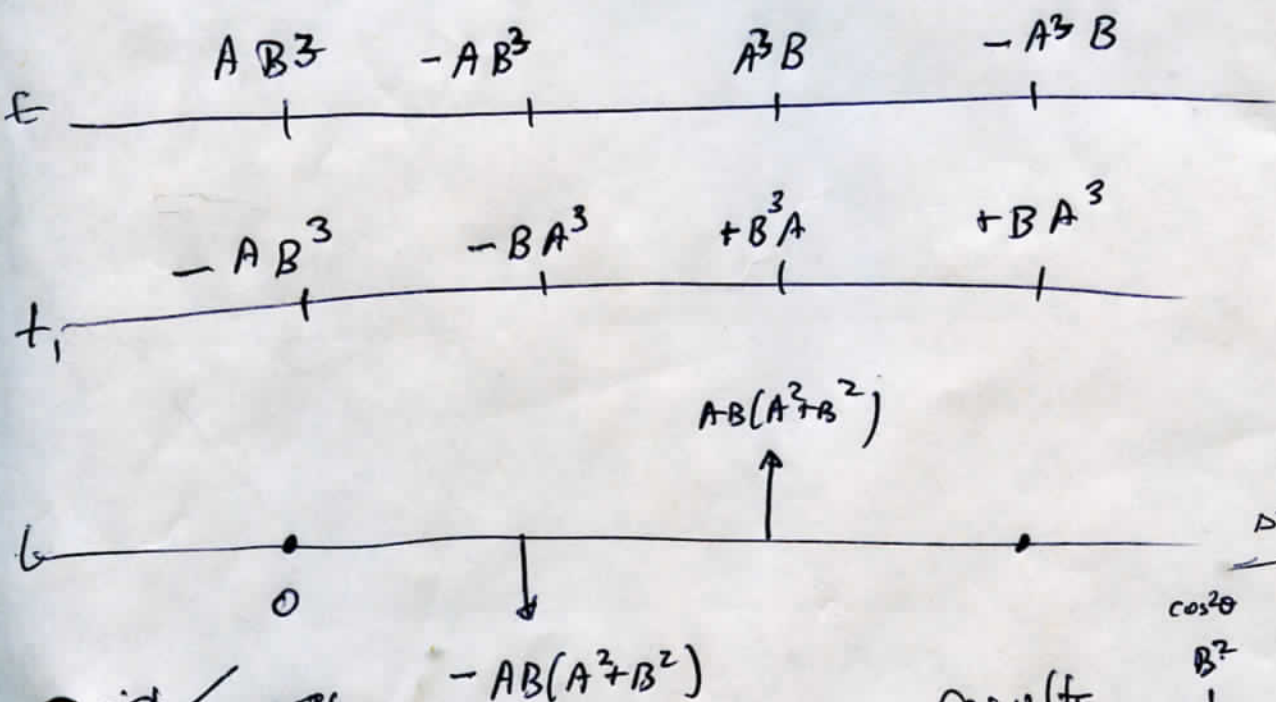 AB³ -AB³ A³B -A³B
t
-AB³ -BA³ +B³A +BA³
t₁
AB(A²+B²)
0
cos²θ
-AB(A²+B²)
B²